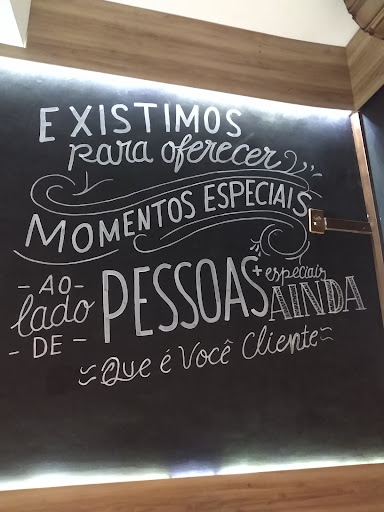 EXISTIMOS
para oferecer
MOMENTOS ESPECIAIS
- AO -
lado
- DE -
PESSOAS
+ especiais
AINDA
Que é Você Cliente